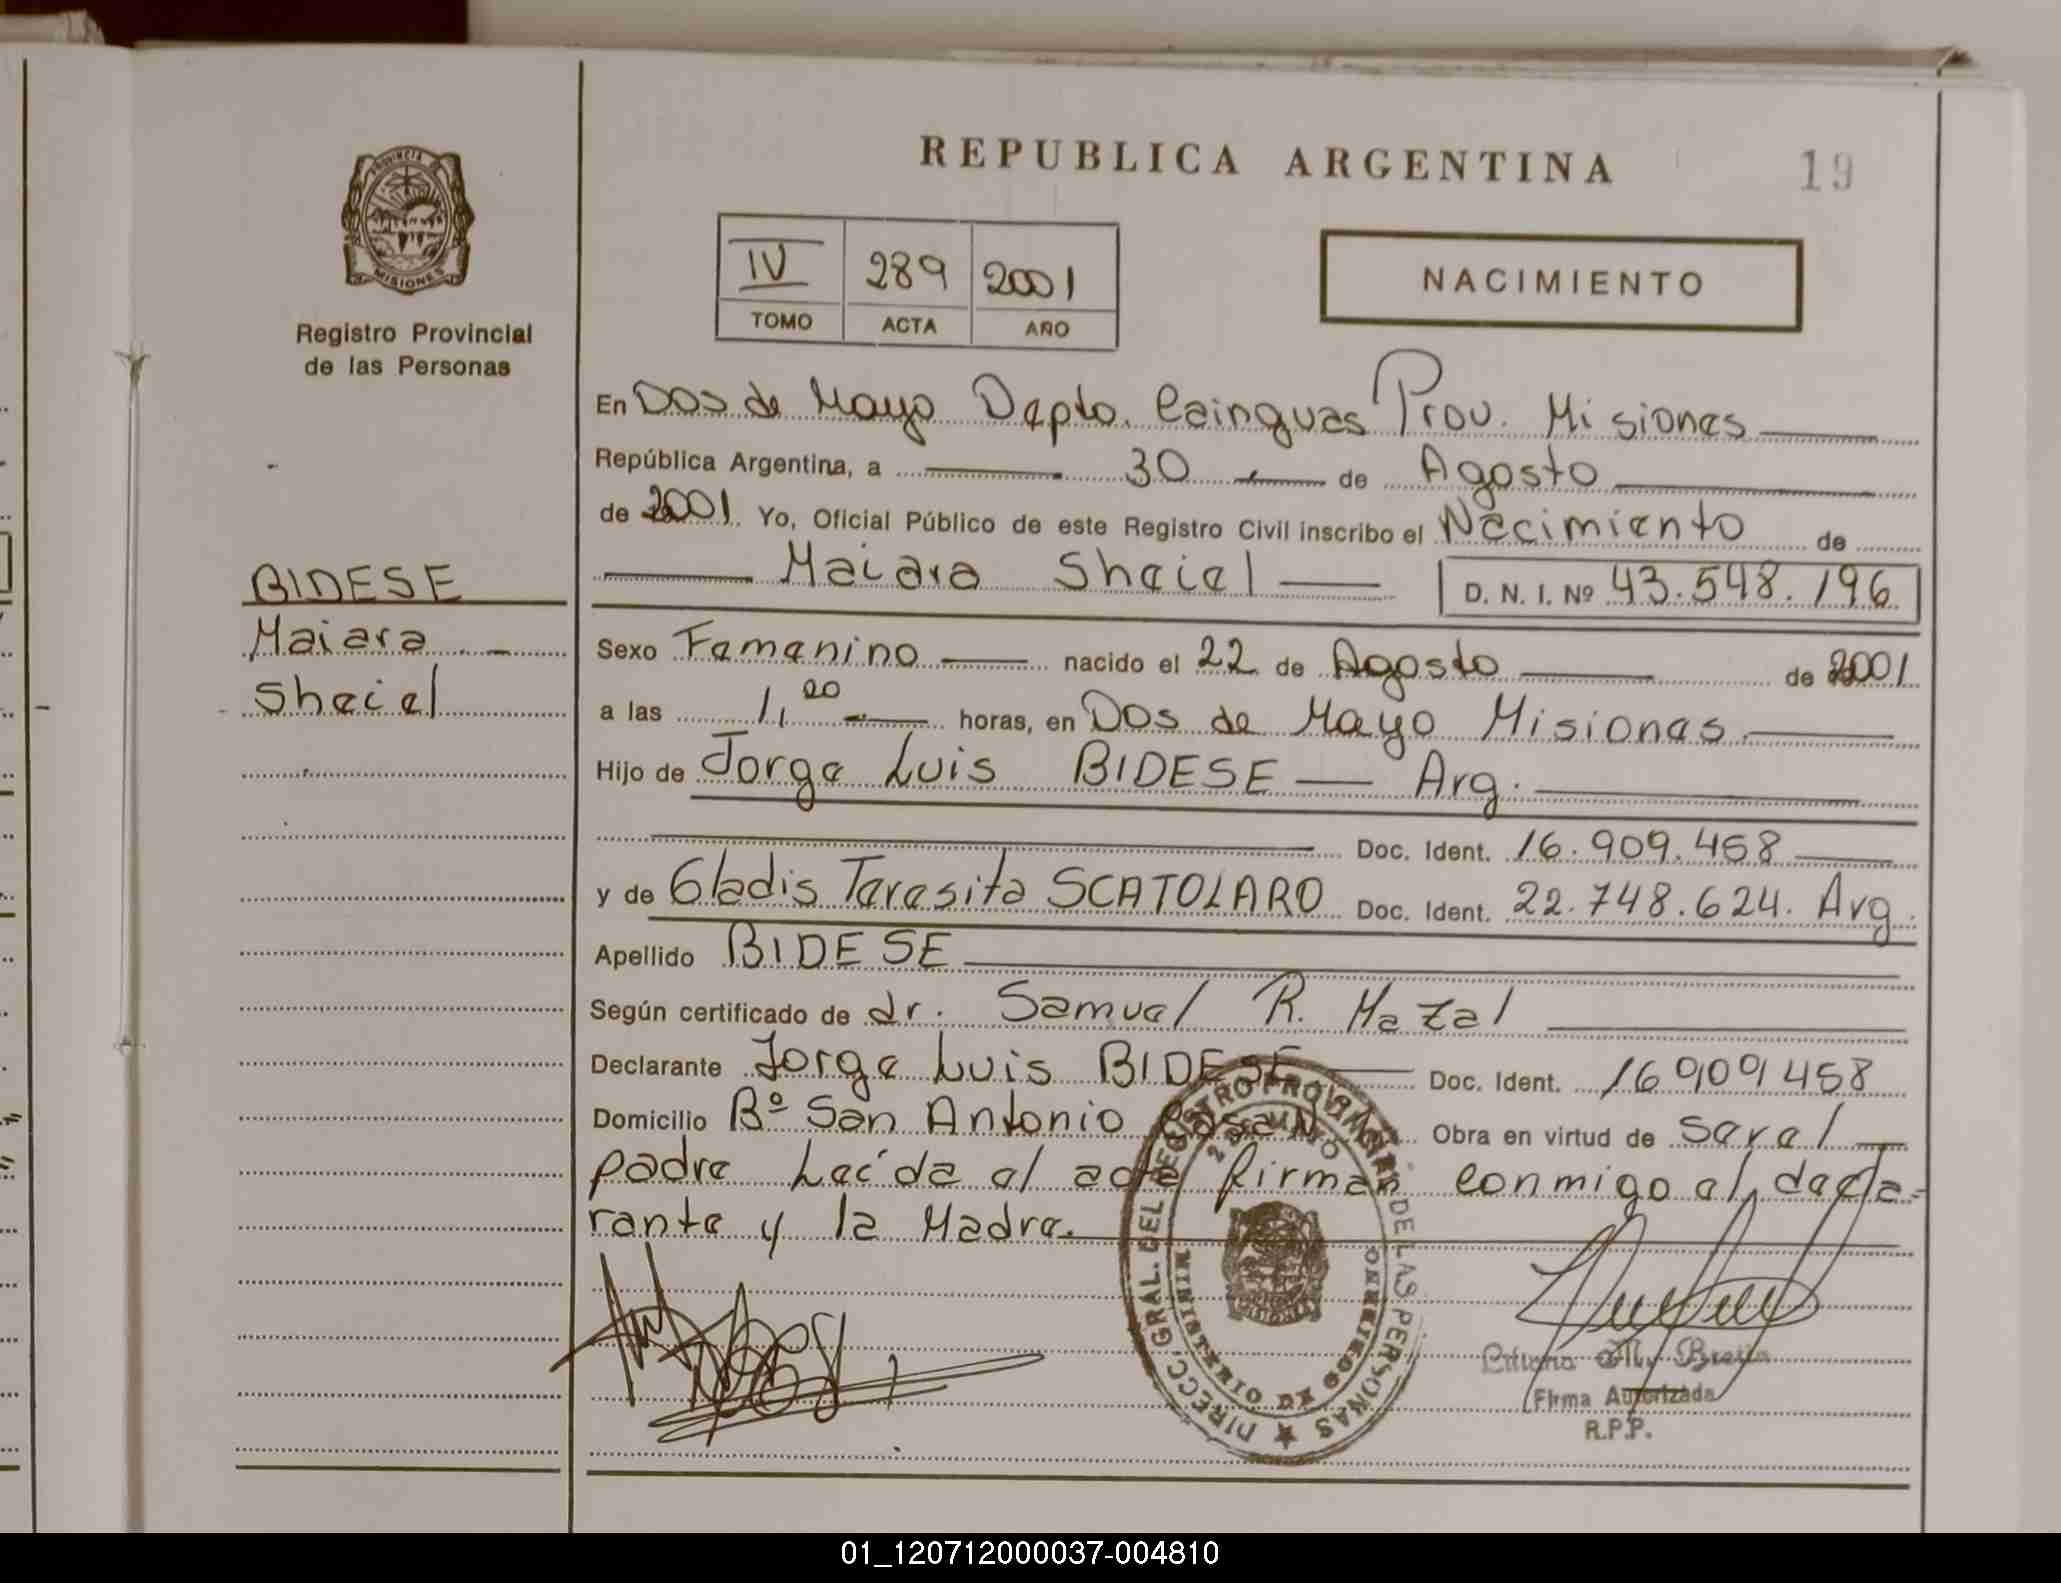 REPUBLICA ARGENTINA
19
PROVINCIA DE
MISIONES
Registro Provincial
de las Personas
IV 289 2001
TOMO ACTA AÑO
NACIMIENTO
En Dos de Mayo Depto. Cainguas Prov. Misiones
República Argentina, a 30 de Agosto
de 2001. Yo, Oficial Público de este Registro Civil inscribo el Nacimiento de
Maiara Sheiel D. N. I. Nº 43.548.196
BIDESE
Maiara
Sheiel
Sexo Femenino nacido el 22 de Agosto de 2001
a las 1,20 horas, en Dos de Mayo Misiones
Hijo de Jorge Luis BIDESE Arg.
Doc. Ident. 16.909.458
y de Gladis Teresita SCATOLARO Doc. Ident. 22.748.624. Arg.
Apellido BIDESE
Según certificado de dr. Samuel R. Mazal
Declarante Jorge Luis BIDESE Doc. Ident. 16909458
Domicilio Bº San Antonio Obra en virtud de ser el
padre Leída el acta firman conmigo el decla-
rante y la Madre.
DIRECC. GRAL. DEL REGISTRO PROVINCIAL DE LAS PERSONAS
MINISTERIO DE GOBIERNO
2 DE MAYO
Firma Autorizada
R.P.P.
01_120712000037-004810